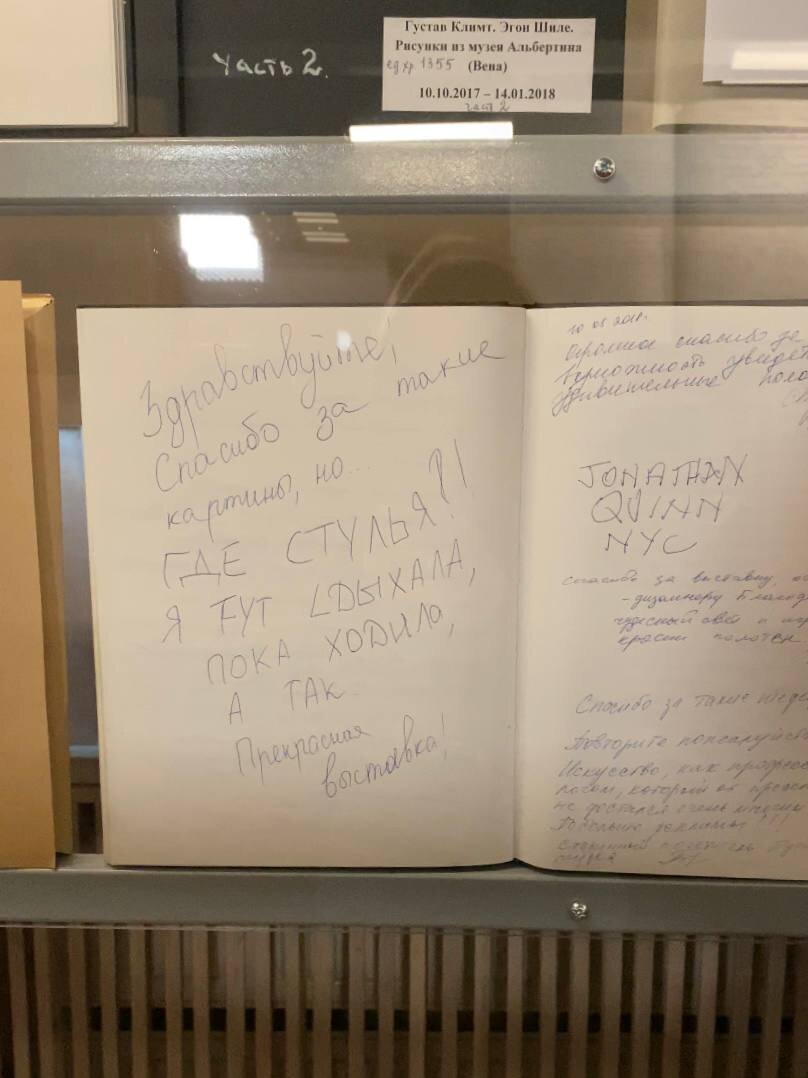 Часть 2.
Густав Климт. Эгон Шиле.
Рисунки из музея Альбертина
ед хр 1355 (Вена)
10.10.2017 – 14.01.2018
часть 2
Здравствуйте,
Спасибо за такие
картины, но...
ГДЕ СТУЛЬЯ?!
Я ТУТ СДЫХАЛА,
ПОКА ХОДИЛА,
А ТАК
Прекрасная
выставка!
Огромное спасибо за
возможность увидеть
удивительные
JONATHAN
QUINN
NYC
спасибо за выставку,
-дизайнеру
чудесный свет и
краски полотен.
Спасибо за такие
Повторите пожалуйста
Искусство, как
который от
не достался очень многим
Побольше рекламы!!!